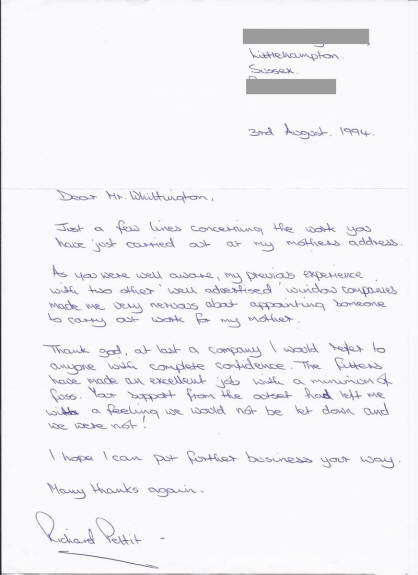 Littlehampton.
Sussex.
3rd August. 1994.
Dear Mr. Whittington,
Just a few lines concerning the work you
have just carried out at my mothers address.
As you were well aware, my previous experience
with two other 'well advertised' window companies
made me very nervous about appointing someone
to carry out work for my mother.
Thank god, at last a company I would refer to
anyone with complete confidence. The fitters
have made an excellent job with a minimum of
fuss. Your support from the outset had left me
with a feeling we would not be let down and
we were not!
I hope I can put further business your way.
Many thanks again.
Richard Pettit